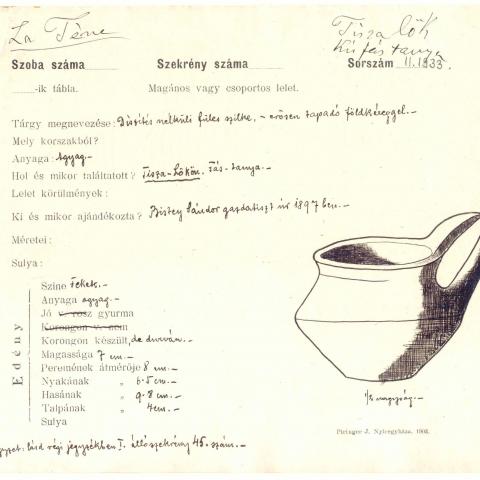 La Tène
Tisza Lök
Kis fás tanya
Szoba száma
Szekrény száma
Sorszám II.1833.
-ik tábla.
Magános vagy csoportos lelet.
Tárgy megnevezése: Díszítés nélküli füles szilke, - erősen tapadó földkéreggel.-
Mely korszakból?
Anyaga: Agyag.-
Hol és mikor találtatott? Tisza-Lökön. Fás-tanya.-
Lelet körülmények:
Ki és mikor ajándékozta? Sándor gazdatiszt úr 1897 ben.-
Méretei:
Sulya:
Edény
Szine Fekete.-
Anyaga agyag.-
Jó v. rosz gyurma
Korongon v. nem
Korongon készült, de durván.-
Magassága 7 cm.-
Peremének átmérője 8 cm.-
Nyakának „ 6.5 cm.-
Hasának „ 9.8 cm.-
Talpának „ 4 cm.-
Sulya
1/2 nagyság.-
Piringer J. Nyiregyháza, 1903.
lásd régi jegyzékben I. állószekrény 45. szám.-